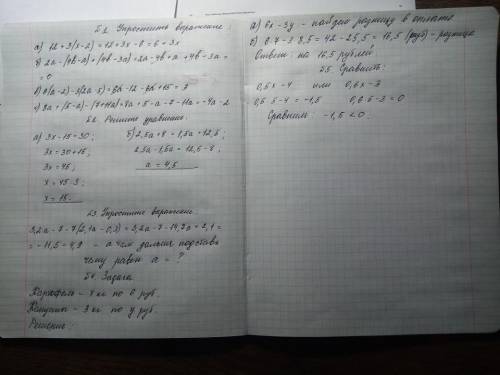 5.1. Упростить выражение:
а) 12+3(x-2)=12+3x-6=6+3x
б) 2a-(4b-a)+(4b-3a)=2a-4b+a+4b-3a=
=0
в) 6(a-2)-3(2a-5)=6a-12-6a+15=3
г) 8a+(5-a)-(7+11a)=8a+5-a-7-11a=-4a-2
5.2. Решите уравнение:
а) 3x-15=30;
3x=30+15;
3x=45;
x=45:3;
x=15.
б) 2,5a+8=1,5a+12,5;
2,5a-1,5a=12,5-8;
a=4,5
5.3. Упростите выражение
3,2a-7-7(2,1a-0,3)=3,2a-7-14,7a+2,1=
=-11,5-4,9 - а чем дальше подставь
чему равен a=?
5.4. Задача
Картофель - 7 кг по 6 руб.
Капуста - 3 кг по y руб.
Решение:
а) 6x-3y - найдем разницу в оплате
б) 6·7-3·8,5=42-25,5=16,5 (руб)-разница
Ответ: на 16,5 рублей
5.5. Сравнить:
0,5x-4 или 0,6x-3
0,5·5-4=-1,5 0,6·5-3=0
Сравним: -1,5<0.